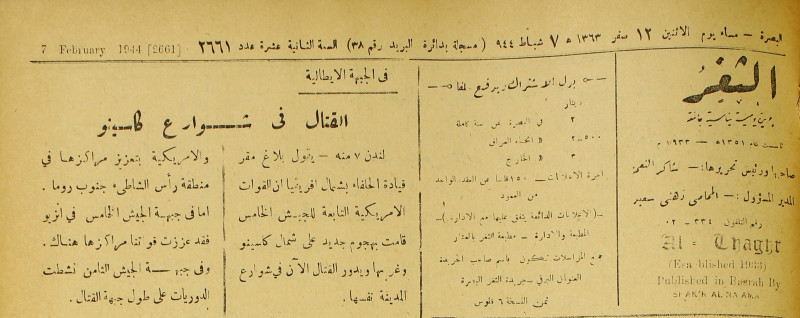 البصرة – مساء يوم الاثنين ١٢ صفر ١٣٦٣ هـ ٧ شباط ٩٤٤ ( مسجلة بدائرة البريد رقم ٣٨ ) السنة الثانية عشرة عدد ٢٦٦١
7 February 1944 [2661]
الثغر
تأسست ١٣٥١ هـ – ١٩٣٣ م
صاحبها ورئيس تحريرها :– شاكر النعمة
المدير المسؤول :– المحامي ذهني سعيد
رقم التلفون ٣٣٤ – ٠٢
Al - Thaghr
(Esablished 1933)
Published in Basrah By
SHAKIR AL NAAMA
بدل الاشتراك ويدفع سلفا
دينار
٢ في البصرة عن سنة كاملة
٥٠٠ – ٢ » انحاء العراق
٣ » الخارج
اجرة الاعلانات – ١٥٠ فلسا عن العقد الواحد
من العمود
–(الاعلانات الدائمة يتفق عليها مع الادارة)–
المطبعة والادارة – مطبعة الثغر بالعشار
جميع المراسلات تكون باسم صاحب الجريدة
العنوان البرقي – جريدة الثغر البصرة
ثمن النسخة ٦ فلوس
في الجبهة الايطالية
القتال في شوارع كاسينو
لندن ٧ منه – يقول بلاغ مقر
قيادة الحلفاء بشمال افريقيا ان القوات
الامريكية التابعة للجيش الخامس
قامت بهجوم جديد على شمال كاسينو
وغربها ويدور القتال الآن في شوارع
المدينة نفسها .
والامريكية بتعزيز مراكزها في
منطقة رأس الشاطىء جنوب روما .
اما في جبهة الجيش الخامس في انزيو
فقد عززت قواتنا مراكزها هناك .
وفي جبهة الجيش الثامن نشطت
الدوريات على طول جبهة القتال .